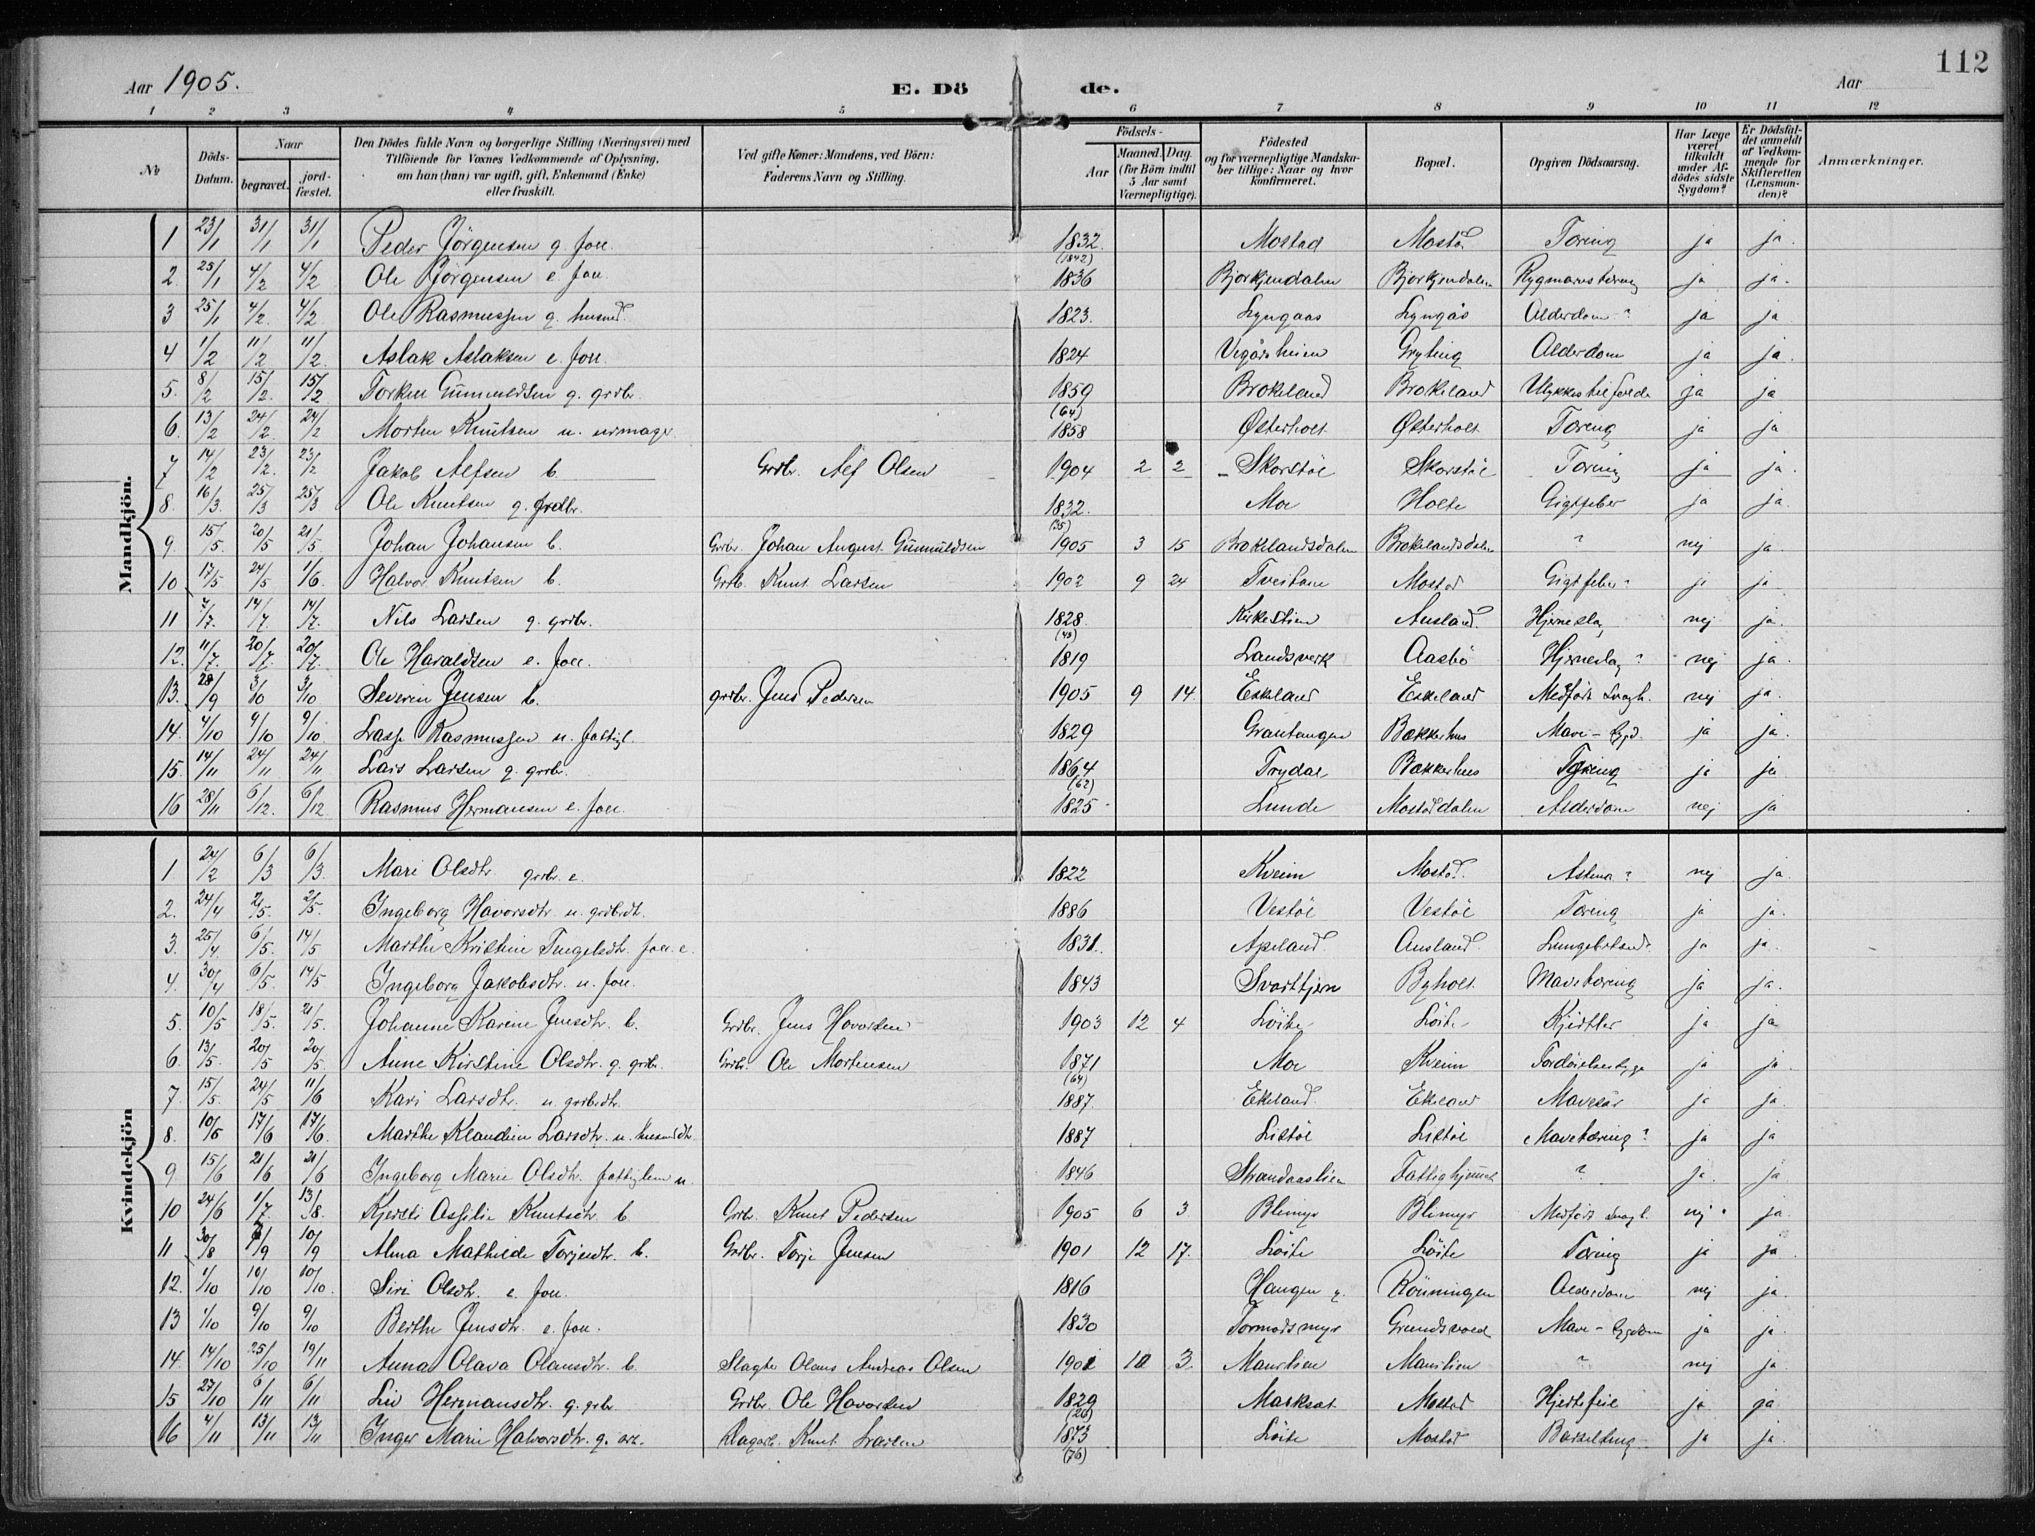 112
Aar 1905. E. Dö de. Aar
1 2 3 4 5 6 7 8 9 10 11 12
No
Döds-Datum.
Naar
begravet. jordfæstet.
Den Dödes fulde Navn og borgerlige Stilling (Næringsvei) med
Tilföiende for Voxnes Vedkommende af Oplysning,
om han (hun) var ugift, gift, Enkemand (Enke)
eller fraskilt.
Ved gifte Koner: Mandens, ved Börn:
Faderens Navn og Stilling.
Födsels-
Aar
Maaned. Dag.
(for Börn indtil
5 Aar samt
Værnepligtige).
Födested
og for værnepligtige Mandskaber tillige: Naar og hvor
konfirmeret.
Bopæl.
Opgiven Dödsaarsag.
Har Læge
været
tilkaldt
under Afdödes sidste
Sygdom?
Er Dödsfaldet anmeldt
af Vedkommende for
Skifteretten
(Lensmanden)?
Anmærkninger.
Mandkjön.
1 23/1 31/1 31/1 Peder Jörgensen g. 1832. (1842) Mostad Mostad Tæring ja ja.
2 23/1 4/2 4/2 Ole Jörgensen e. 1836 Bjorkjendalen Bjorkjendalen Rygmarvstæring ja ja.
3 25/1 4/2. 4/2 Ole Rasmussen g. husmd. 1823. Lyngaas Lyngås Alderdom ? ja ja
4 1/2 11/2 11/2. Aslak Aslaksen e. 1824 Vegårsheien Gryting Alderdom ja ja.
5. 8/2 15/2. 15/2 Torken Gunnuldsen g. grdbr. 1859 (64) Brokeland Brokeland Ulykkestilfælde ja ja
6. 13/2 24/2. 24/2 Morten Knutsen u. urmager. 1858 Østerholt Østerholt Tæring ja ja
7 14/2 23/2. 23/2 Jakob Alfsen b. Grdbr. Alf Olsen 1904 2 2 Skorstöl Skorstöl Tæring ja ja.
8. 16/3. 25/3 25/3 Ole Knutsen g. grdbr. 1832. (35) Moe Holte Gigtfeber ja ja.
9 15/5. 20/5 21/5 Johan Johansen b. Grdbr. Johan August Gunnuldsen 1905 3 15 Brokelandsdalen Brokelandsdalen ? nej ja
10 17/5 24/5 1/6. Halvor Knutsen b. Grdb. Knut Larsen 1902 9 24 Tveitane Mostad Gigtfeber ? ja ja
11 7/7. 14/7 14/7. Nils Larsen g. grdbr. 1828. (48) Kirkestien Ausland. Hjerneslag nej ja.
12. 11/7. 20/7 20/7 Ole Haraldsen e. 1819 Landsverk Aasbö Hjerneslag ? nej ja.
13. 28/9 3/10 3/10 Severin Jensen b. grdbr. Jens Pedersen 1905 9 14. Eskeland Eskeland Medfödt Svagh. nej ja.
14. 4/10 9/10 9/10 Lasse Rasmussen u. fattigl. 1829 Grautangen Bakkerhus Mave-Sygd. ja ja.
15. 14/11 24/11 24/11 Lars Larsen g. grdbr. 1864 (62) Trydal Bakkerhus Tæring ja ja
16 28/11 6/12. 6/12 Rasmus Hermansen e. 1825 Lunde Mostaddalen Alderdom nej ja
Kvindekjön
1 24/2 6/3 6/3. Mari Olsdtr. grdbr. e. 1822 Kveim Mostad. Astma ? nej ja.
2. 24/4 2/5. 2/5. Ingeborg Havorsdtr. u. grdbrdt. 1886 Vestöl Vestöl Tæring ja ja.
3. 25/4. 6/5. 14/5 Marthe Kristine Tingelsdtr. e. 1831. Apeland. Ausland. ja ja.
4. 30/4 6/5. 14/5 Ingeborg Jakobsdtr. u. 1843 Svarttjern Byholt. Mavetæring ja ja.
5. 10/5 18/5. 21/5. Johanne Karine Jensdtr. b. Grdbr. Jens Havorsen 1903 12 4 Löite Löite Kjertler ja ja
6. 13/5. 20/5 20/5. Anne Kirstine Olsdtr. g. grdbr. Grdbr. Ole Mortensen 1871 (64) Moe Kveim ja ja.
7. 15/5. 24/5 11/6 Kari Larsdtr. u. grdbrdtr. 1887. Ekeland. Ekeland Mavesår ja ja
8. 10/6 17/6 17/6. Marthe Klaudine Larsdtr. u. husmdtr. 1887 Listöl Listöl Mavetæring ? ja ja
9 15/6 21/6 21/6 Ingeborg Marie Olsdtr. fattiglem u. 1846 Strandaaslien Fattighjemmet ? ja. ja
10 24/6 1/7 13/8. Kjersti Assilie Knutsdtr. b Grdbr. Knut Pedersen 1905 6 3. Blimyr Blimyr Medfödt Svagh. nej ja.
11 30/8 9/9 10/9 Alma Mathilde Torjesdtr. b. Grdbr. Torje Jensen 1901 12 17. Löite Löite Tæring ja ja
12. 1/10 10/10 10/10. Siri Olsdtr. e. 1816 Haugen Rönningen Alderdom nej ja.
13 1/10 9/10 9/10 Berthe Jensdtr. e. 1830 Tormodsmyr Grundsvoed Mave-Sygdom ja ja
14. 14/10 25/10 19/11 Anna Olava Olausdtr. b. Slagter Olaus Andreas Olsen 1902 10 3. Maurlien Maurlien ? nej ja
15 27/10 6/11 6/11 Liv Hermansdtr. g. grbr. Grdbr Ole Havorsen 1829 (26) Masksat Mostad Hjertefeil ja ja
16 4/11 13/11 13/11 Inger Marie Halvorsdtr. g. Dagarb. Knut Larsen 1873 (76) Löite Mostad ja ja.